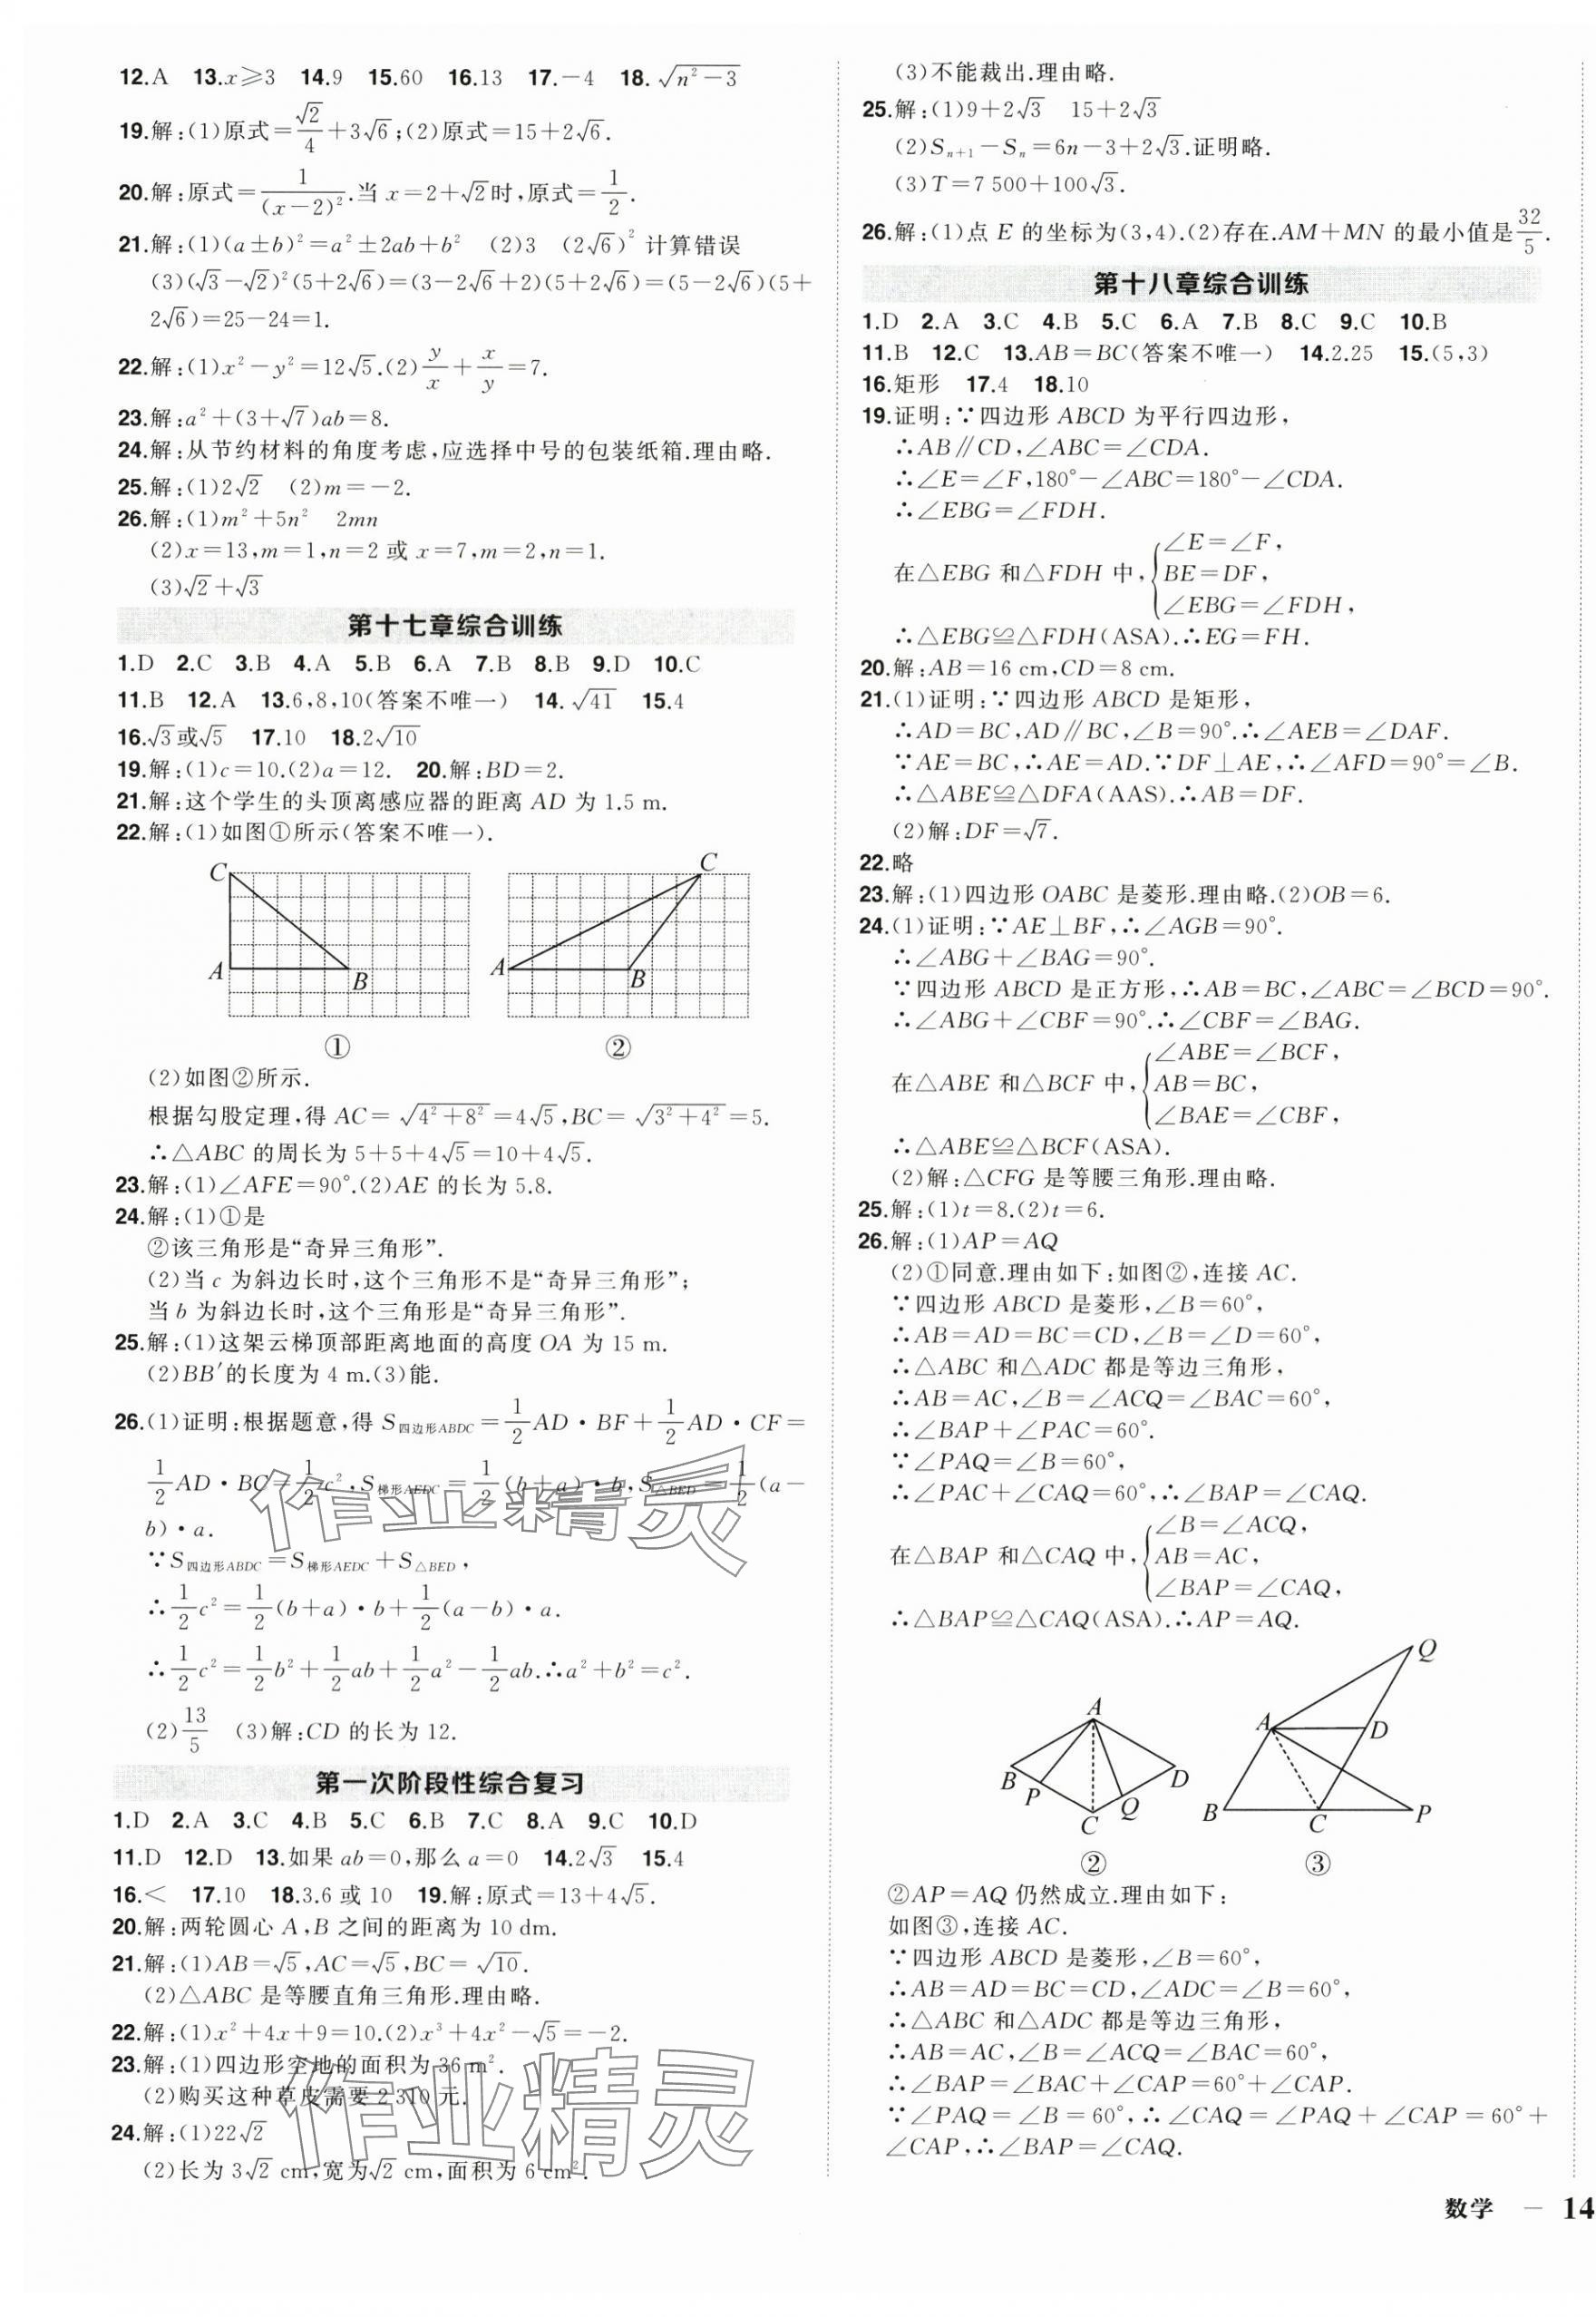 12.A 13.x≥3 14.9 15.60 16.13 17.−4 18.√(n²−3)
19.解:(1)原式=√2/4+3√6;(2)原式=15+2√6.
20.解:原式=1/(x−2)².当 x=2+√2时,原式=1/2.
21.解:(1)(a±b)²=a²±2ab+b² (2)3 (2√6)² 计算错误
(3)(√3−√2)²(5+2√6)=(3−2√6+2)(5+2√6)=(5−2√6)(5+
2√6)=25−24=1.
22.解:(1)x²−y²=12√5.(2)y/x+x/y=7.
23.解:a²+(3+√7)ab=8.
24.解:从节约材料的角度考虑,应选择中号的包装纸箱.理由略.
25.解:(1)2√2 (2)m=−2.
26.解:(1)m²+5n² 2mn
(2)x=13,m=1,n=2 或 x=7,m=2,n=1.
(3)√2+√3
第十七章综合训练
1.D 2.C 3.B 4.A 5.B 6.A 7.B 8.B 9.D 10.C
11.B 12.A 13.6,8,10(答案不唯一) 14.√41 15.4
16.√3或√5 17.10 18.2√10
19.解:(1)c=10.(2)a=12. 20.解:BD=2.
21.解:这个学生的头顶离感应器的距离 AD 为 1.5 m.
22.解:(1)如图①所示(答案不唯一).
C A B
①
C A B
②
(2)如图②所示.
根据勾股定理,得 AC=√(4²+8²)=4√5,BC=√(3²+4²)=5.
∴△ABC 的周长为 5+5+4√5=10+4√5.
23.解:(1)∠AFE=90°.(2)AE 的长为 5.8.
24.解:(1)①是
②该三角形是“奇异三角形”.
(2)当 c 为斜边长时,这个三角形不是“奇异三角形”;
当 b 为斜边长时,这个三角形是“奇异三角形”.
25.解:(1)这架云梯顶部距离地面的高度 OA 为 15 m.
(2)BB′的长度为 4 m.(3)能.
26.(1)证明:根据题意,得 S四边形ABDC=1/2 AD·BF+1/2 AD·CF=
1/2 AD·BC=1/2 c²,S梯形AEDC=1/2(b+a)·b,S△BED=1/2(a−
b)·a.
∵S四边形ABDC=S梯形AEDC+S△BED,
∴1/2 c²=1/2(b+a)·b+1/2(a−b)·a.
∴1/2 c²=1/2 b²+1/2 ab+1/2 a²−1/2 ab.∴a²+b²=c².
(2)13/5 (3)解:CD 的长为 12.
第一次阶段性综合复习
1.D 2.A 3.C 4.B 5.C 6.B 7.C 8.A 9.C 10.D
11.D 12.D 13.如果 ab=0,那么 a=0 14.2√3 15.4
16.< 17.10 18.3.6 或 10 19.解:原式=13+4√5.
20.解:两轮圆心 A,B 之间的距离为 10 dm.
21.解:(1)AB=√5,AC=√5,BC=√10.
(2)△ABC 是等腰直角三角形.理由略.
22.解:(1)x²+4x+9=10.(2)x³+4x²−√5=−2.
23.解:(1)四边形空地的面积为 36 m².
(2)购买这种草皮需要 2 310 元.
24.解:(1)22√2
(2)长为 3√2 cm,宽为√2 cm,面积为 6 cm².
作业精灵
作业精灵
(3)不能裁出.理由略.
25.解:(1)9+2√3 15+2√3
(2)Sₙ₊₁−Sₙ=6n−3+2√3.证明略.
(3)T=7 500+100√3.
26.解:(1)点 E 的坐标为(3,4).(2)存在.AM+MN 的最小值是32/5.
第十八章综合训练
1.D 2.A 3.C 4.B 5.C 6.A 7.B 8.C 9.C 10.B
11.B 12.C 13.AB=BC(答案不唯一) 14.2.25 15.(5,3)
16.矩形 17.4 18.10
19.证明:∵四边形 ABCD 为平行四边形,
∴AB∥CD,∠ABC=∠CDA.
∴∠E=∠F,180°−∠ABC=180°−∠CDA.
∴∠EBG=∠FDH.
∠E=∠F,
在△EBG 和△FDH 中,{BE=DF,
∠EBG=∠FDH,
∴△EBG≌△FDH(ASA).∴EG=FH.
20.解:AB=16 cm,CD=8 cm.
21.(1)证明:∵四边形 ABCD 是矩形,
∴AD=BC,AD∥BC,∠B=90°.∴∠AEB=∠DAF.
∵AE=BC,∴AE=AD.∵DF⊥AE,∴∠AFD=90°=∠B.
∴△ABE≌△DFA(AAS).∴AB=DF.
(2)解:DF=√7.
22.略
23.解:(1)四边形 OABC 是菱形.理由略.(2)OB=6.
24.(1)证明:∵AE⊥BF,∴∠AGB=90°.
∴∠ABG+∠BAG=90°.
∵四边形 ABCD 是正方形,∴AB=BC,∠ABC=∠BCD=90°.
∴∠ABG+∠CBF=90°.∴∠CBF=∠BAG.
∠ABE=∠BCF,
在△ABE 和△BCF 中,{AB=BC,
∠BAE=∠CBF,
∴△ABE≌△BCF(ASA).
(2)解:△CFG 是等腰三角形.理由略.
25.解:(1)t=8.(2)t=6.
26.解:(1)AP=AQ
(2)①同意.理由如下:如图②,连接 AC.
∵四边形 ABCD 是菱形,∠B=60°,
∴AB=AD=BC=CD,∠B=∠D=60°,
∴△ABC 和△ADC 都是等边三角形,
∴AB=AC,∠B=∠ACQ=∠BAC=60°,
∴∠BAP+∠PAC=60°.
∵∠PAQ=∠B=60°,
∴∠PAC+∠CAQ=60°,∴∠BAP=∠CAQ.
∠B=∠ACQ,
在△BAP 和△CAQ 中,{AB=AC,
∠BAP=∠CAQ,
∴△BAP≌△CAQ(ASA).∴AP=AQ.
A B P C Q D
②
Q A D B C P
③
②AP=AQ 仍然成立.理由如下:
如图③,连接 AC.
∵四边形 ABCD 是菱形,∠B=60°,
∴AB=AD=BC=CD,∠ADC=∠B=60°,
∴△ABC 和△ADC 都是等边三角形,
∴AB=AC,∠B=∠ACQ=∠BAC=60°,
∴∠BAP=∠BAC+∠CAP=60°+∠CAP.
∵∠PAQ=∠B=60°,∴∠CAQ=∠PAQ+∠CAP=60°+
∠CAP,∴∠BAP=∠CAQ.
数学 — 14